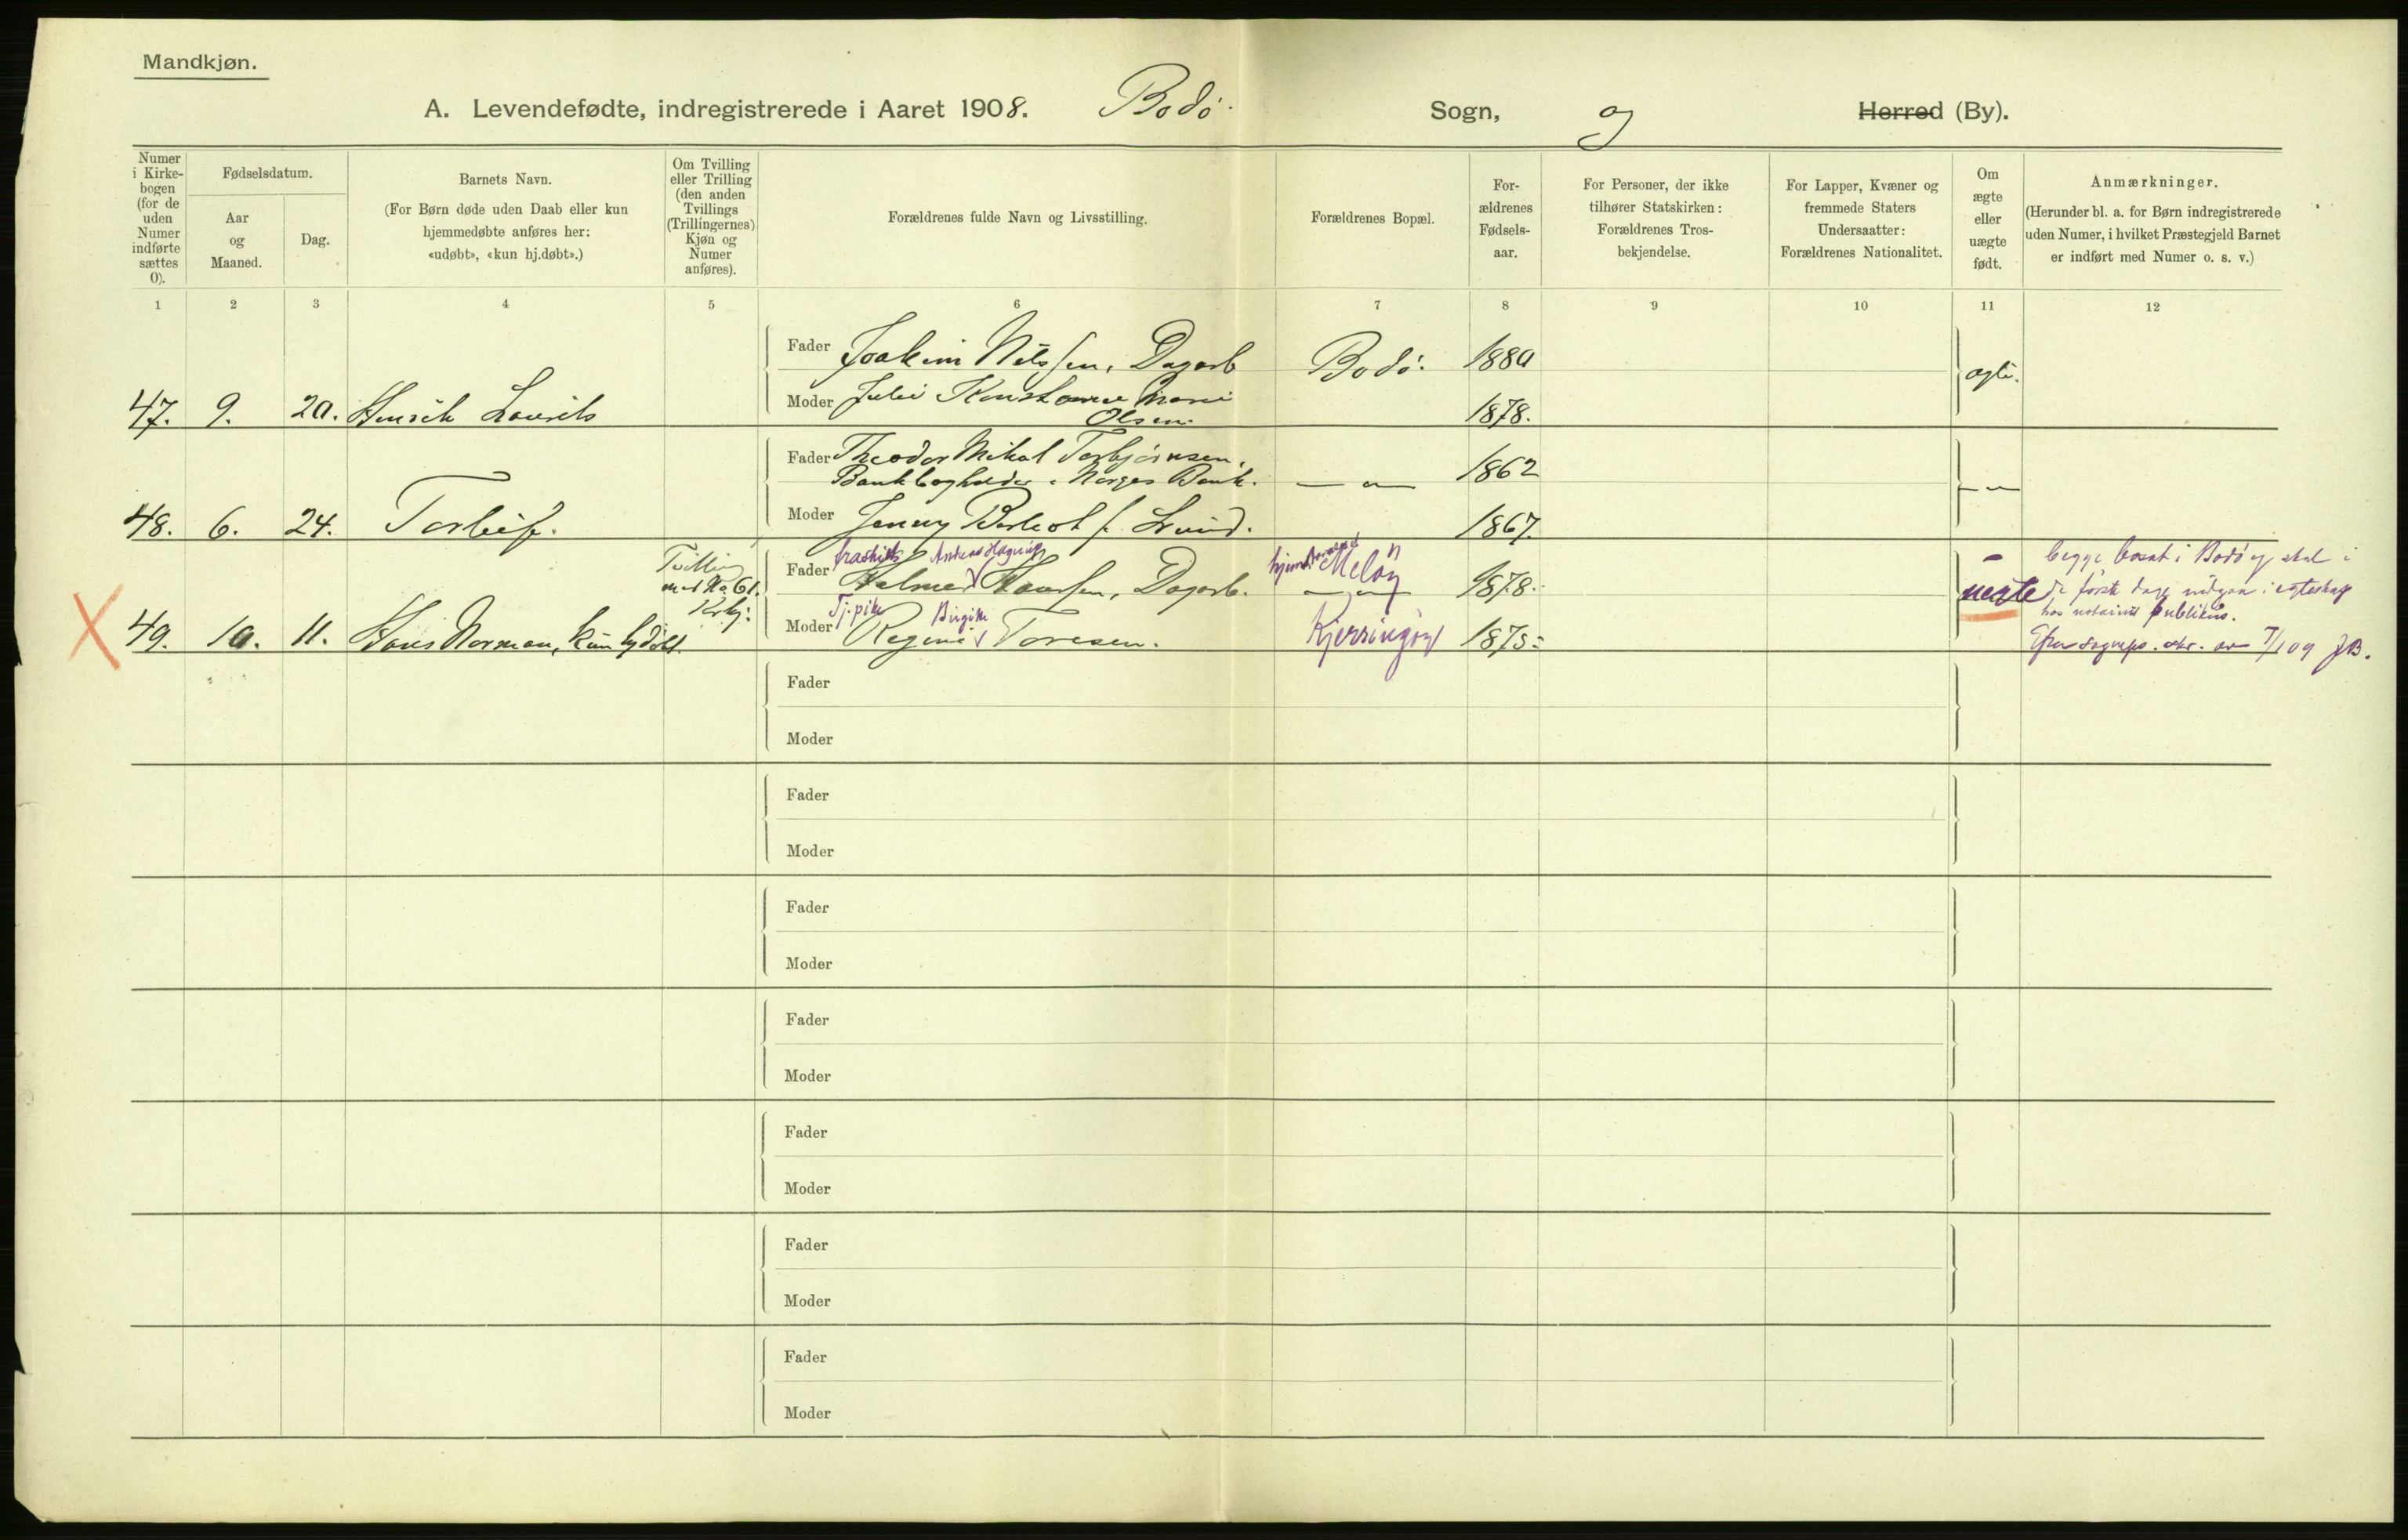 Mandkjøn.
A. Levendefødte, indregistrerede i Aaret 1908. Bodø. Sogn, og Herred (By).
Numer
i Kirke-
bogen
(for de
uden
Numer
indførte
sættes
0).
Fødselsdatum.
Aar
og
Maaned.
Dag.
Barnets Navn.
(For Børn døde uden Daab eller kun
hjemmedøbte anføres her:
«udøbt», «kun hj.døbt».)
Om Tvilling
eller Trilling
(den anden
Tvillings
(Trillingernes)
Kjøn og
Numer
anføres).
Forældrenes fulde Navn og Livsstilling.
Forældrenes Bopæl.
For-
ældrenes
Fødsels-
aar.
For Personer, der ikke
tilhører Statskirken:
Forældrenes Tros-
bekjendelse.
For Lapper, Kvæner og
fremmede Staters
Undersaatter:
Forældrenes Nationalitet.
Om
ægte
eller
uægte
født.
Anmærkninger.
(Herunder bl. a. for Børn indregistrerede
uden Numer, i hvilket Præstegjeld Barnet
er indført med Numer o. s. v.)
1 2 3 4 5 6 7 8 9 10 11 12
Fader Joakim Nilssen, Dagarb Bodø. 1880
ægte.
47. 9. 20. Henrik Laurits Moder Julie Konstanse Marie 1878.
Olsen.
Fader Theodor Mikal Torbjørnsen,
Bankbogholder i Norges Bank. — " — 1862
— " —
48. 6. 24. Torleif. Moder Jenny Berhot f. Lund. 1867.
Tvilling
med No. 61.
Kvkj:
fraskilt Anton Hagerup hjemst. Meløy
Fader Halmer Hansen, Dagarb. — " — 1878.
Tj.pike Birgitte
49. 10. 11. Hans Norman, kun hjdøbt. Moder Regine Toresen. Kjerringøy 1875.
uegte
begge bosat i Bodø og skal i
de første dage indgaa i egteskap
hos notarius publikus.
Efter sogneps. skr. av 7/1 09 JB.
Fader
Moder
Fader
Moder
Fader
Moder
Fader
Moder
Fader
Moder
Fader
Moder
Fader
Moder